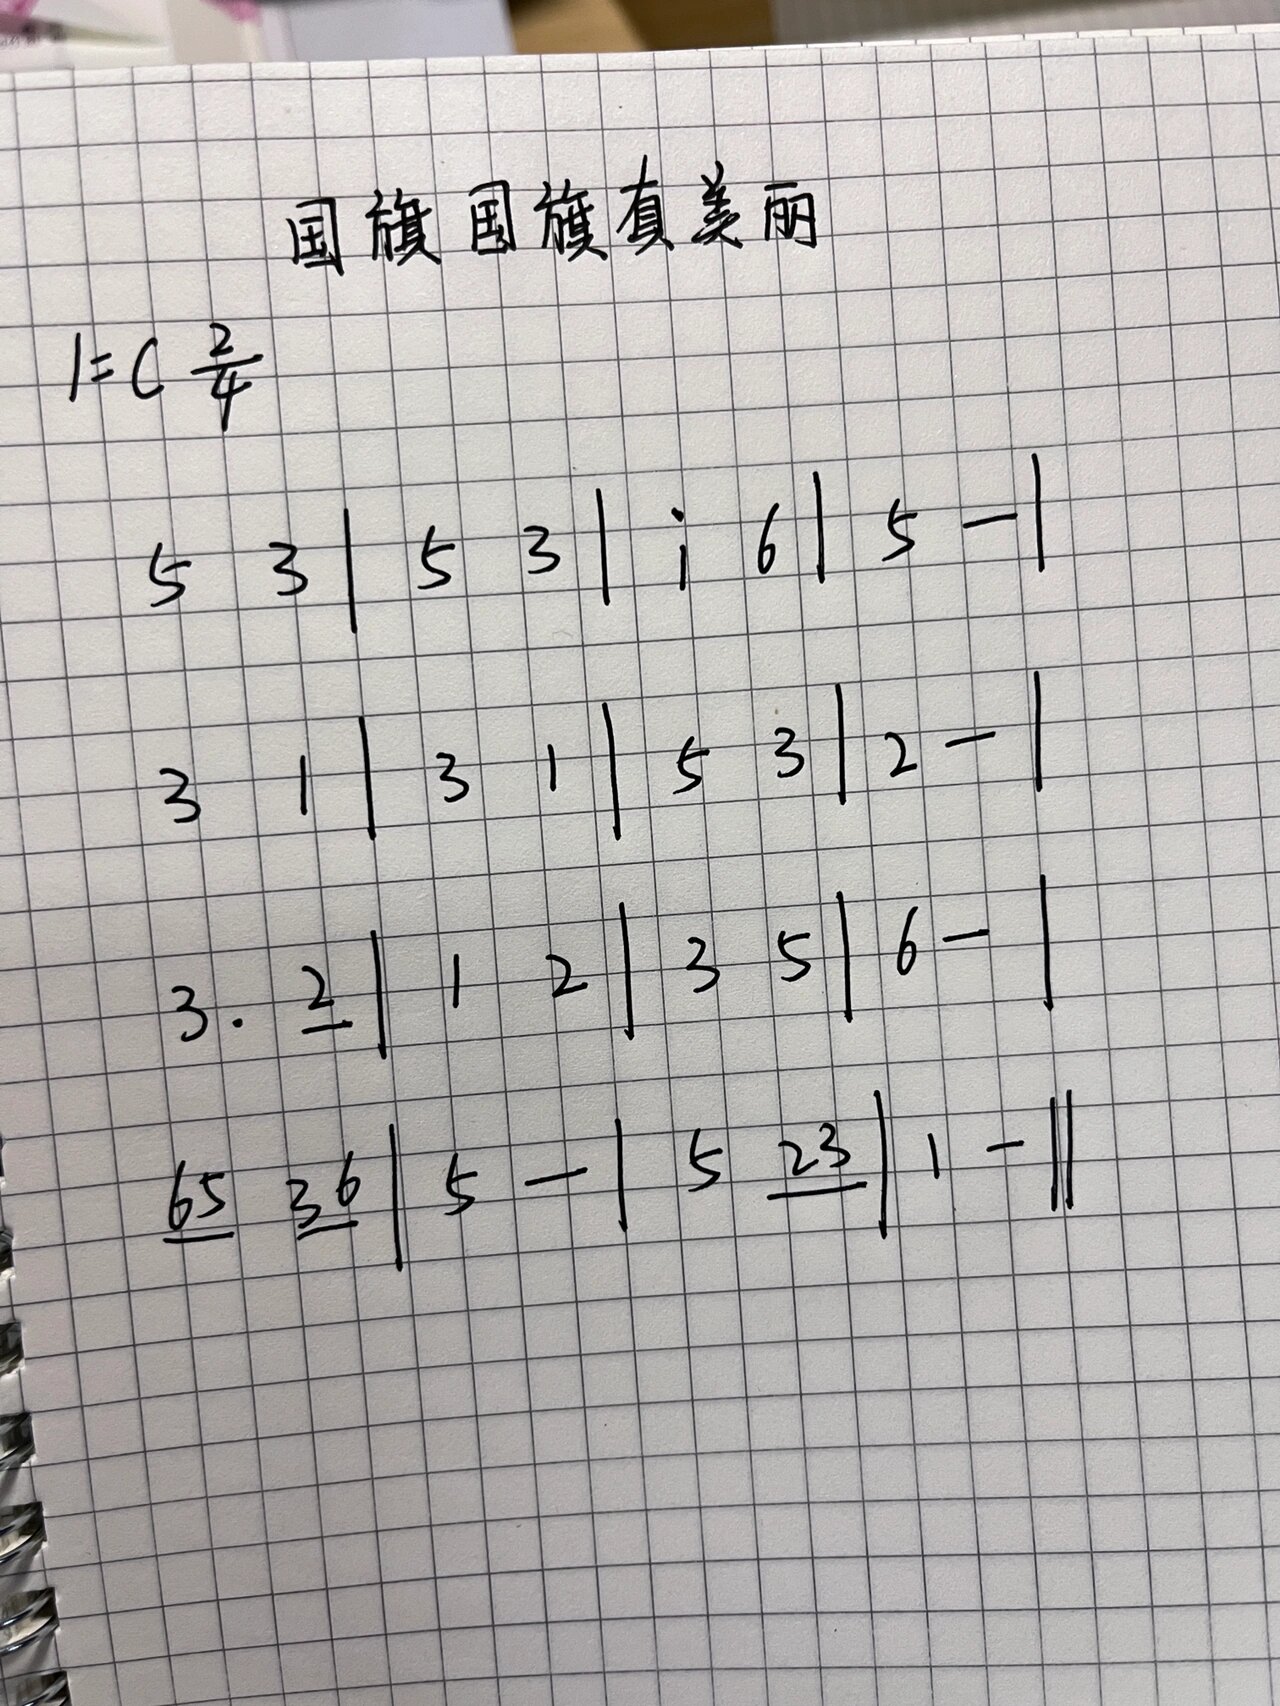 国旗国旗真美丽
1=C 2/4
5 3 | 5 3 | i 6 | 5 — |
3 1 | 3 1 | 5 3 | 2 — |
3. 2 | 1 2 | 3 5 | 6 — |
65 36 | 5 — | 5 23 | 1 — ||